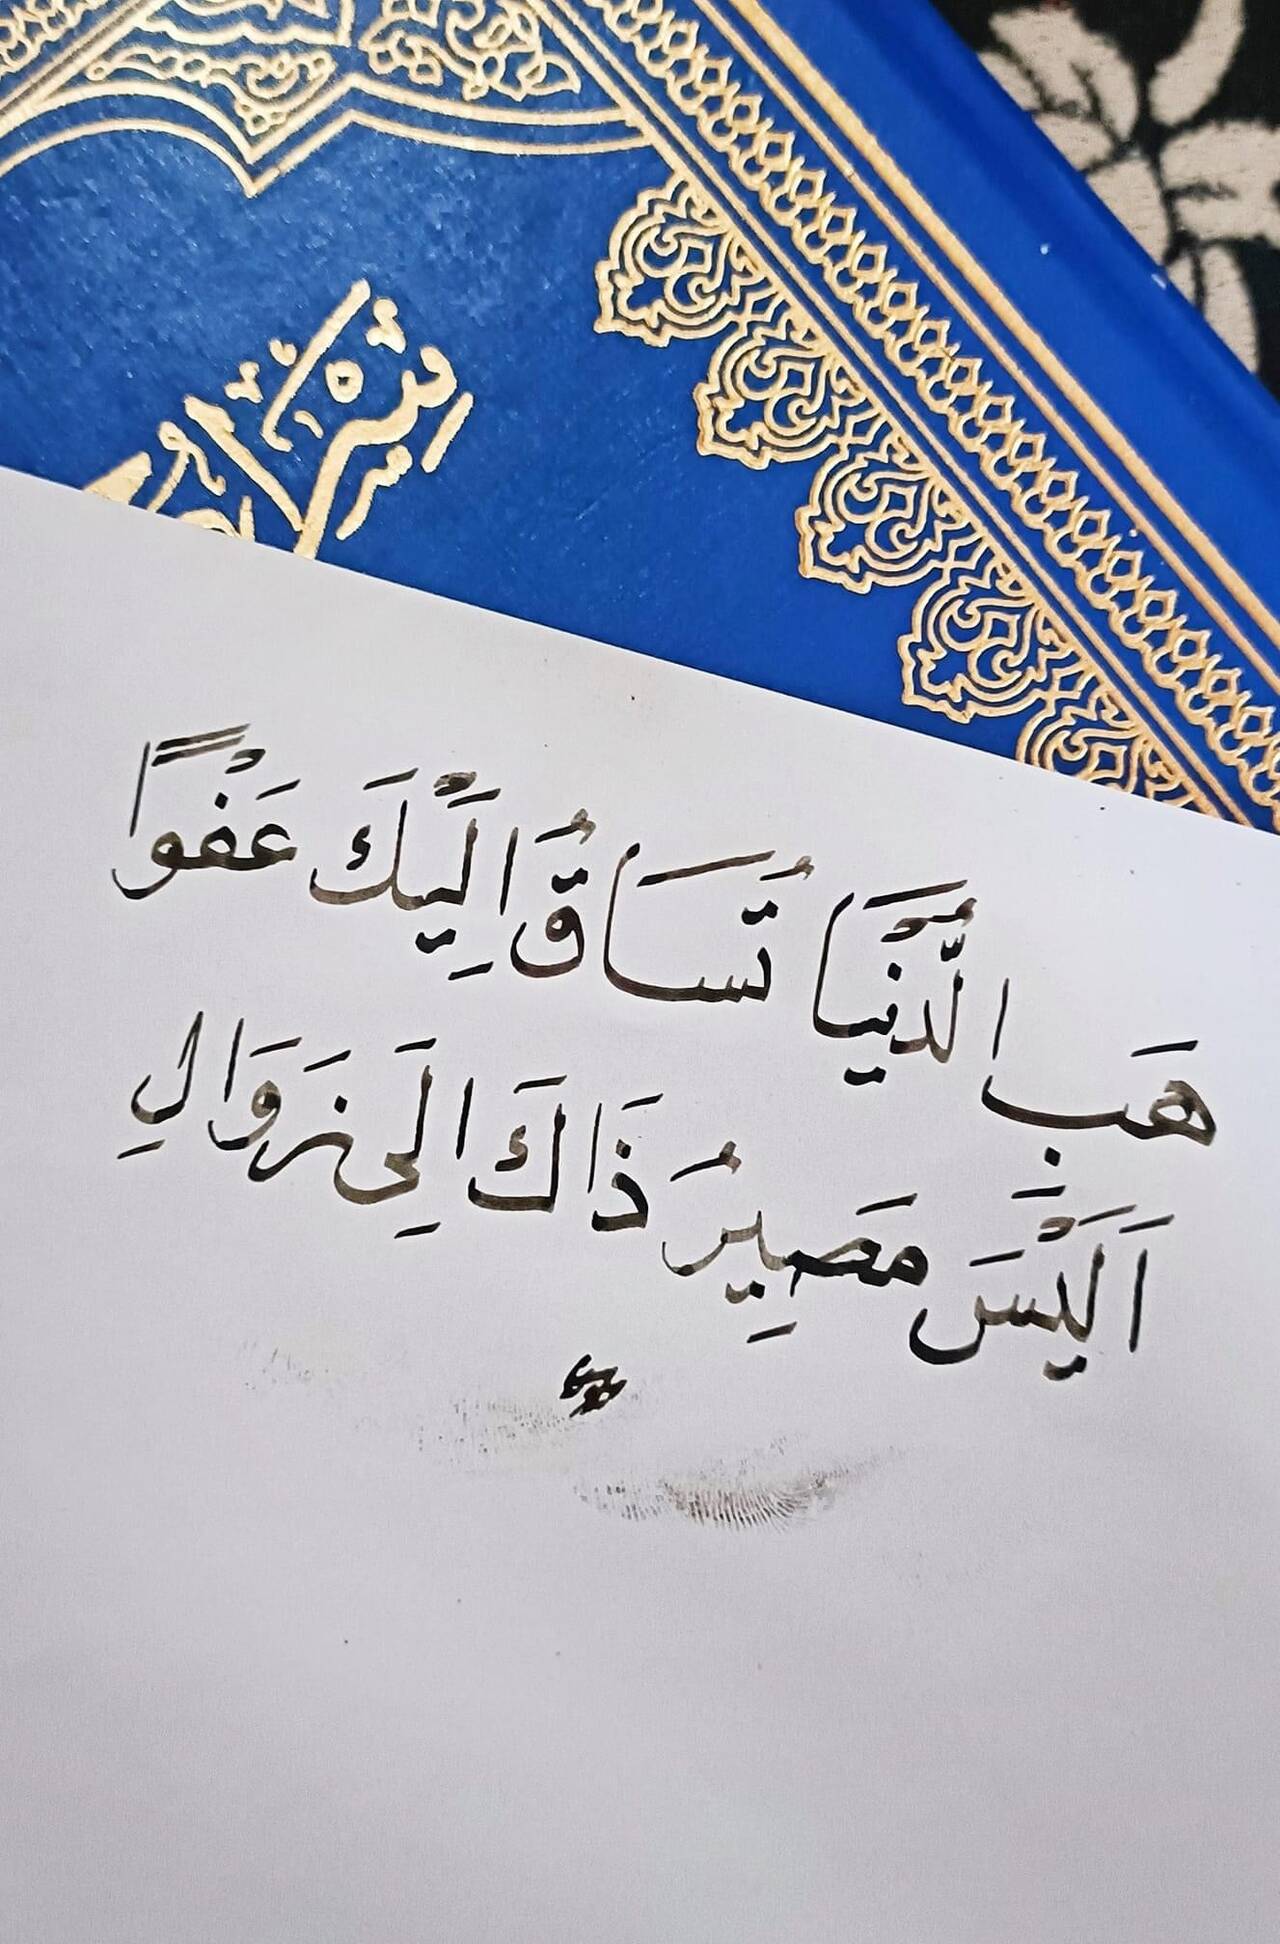 هَبِ الدُّنْيَا تُسَاقُ اِلَيْكَ عَفْوًا
اَلَيْسَ مَصِيرُ ذَاكَ اِلَى زَوَالِ